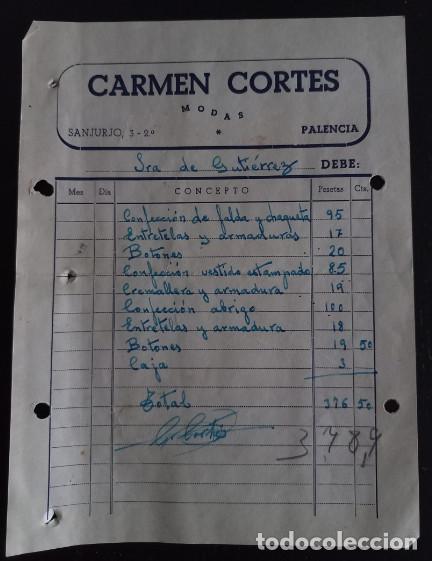 CARMEN CORTES
MODAS
SANJURJO, 3 - 2.º * PALENCIA
Sra de Gutiérrez DEBE:
Mes Día CONCEPTO Pesetas Cts.
Confección de falda y chaqueta 95
Entretelas y armaduras 17
Botones 20
Confección vestido estampado 85
Cremallera y armadura 19
Confección abrigo 100
Entretelas y armadura 18
Botones 19 50
Caja 3
Total 376 50
todocoleccion.net